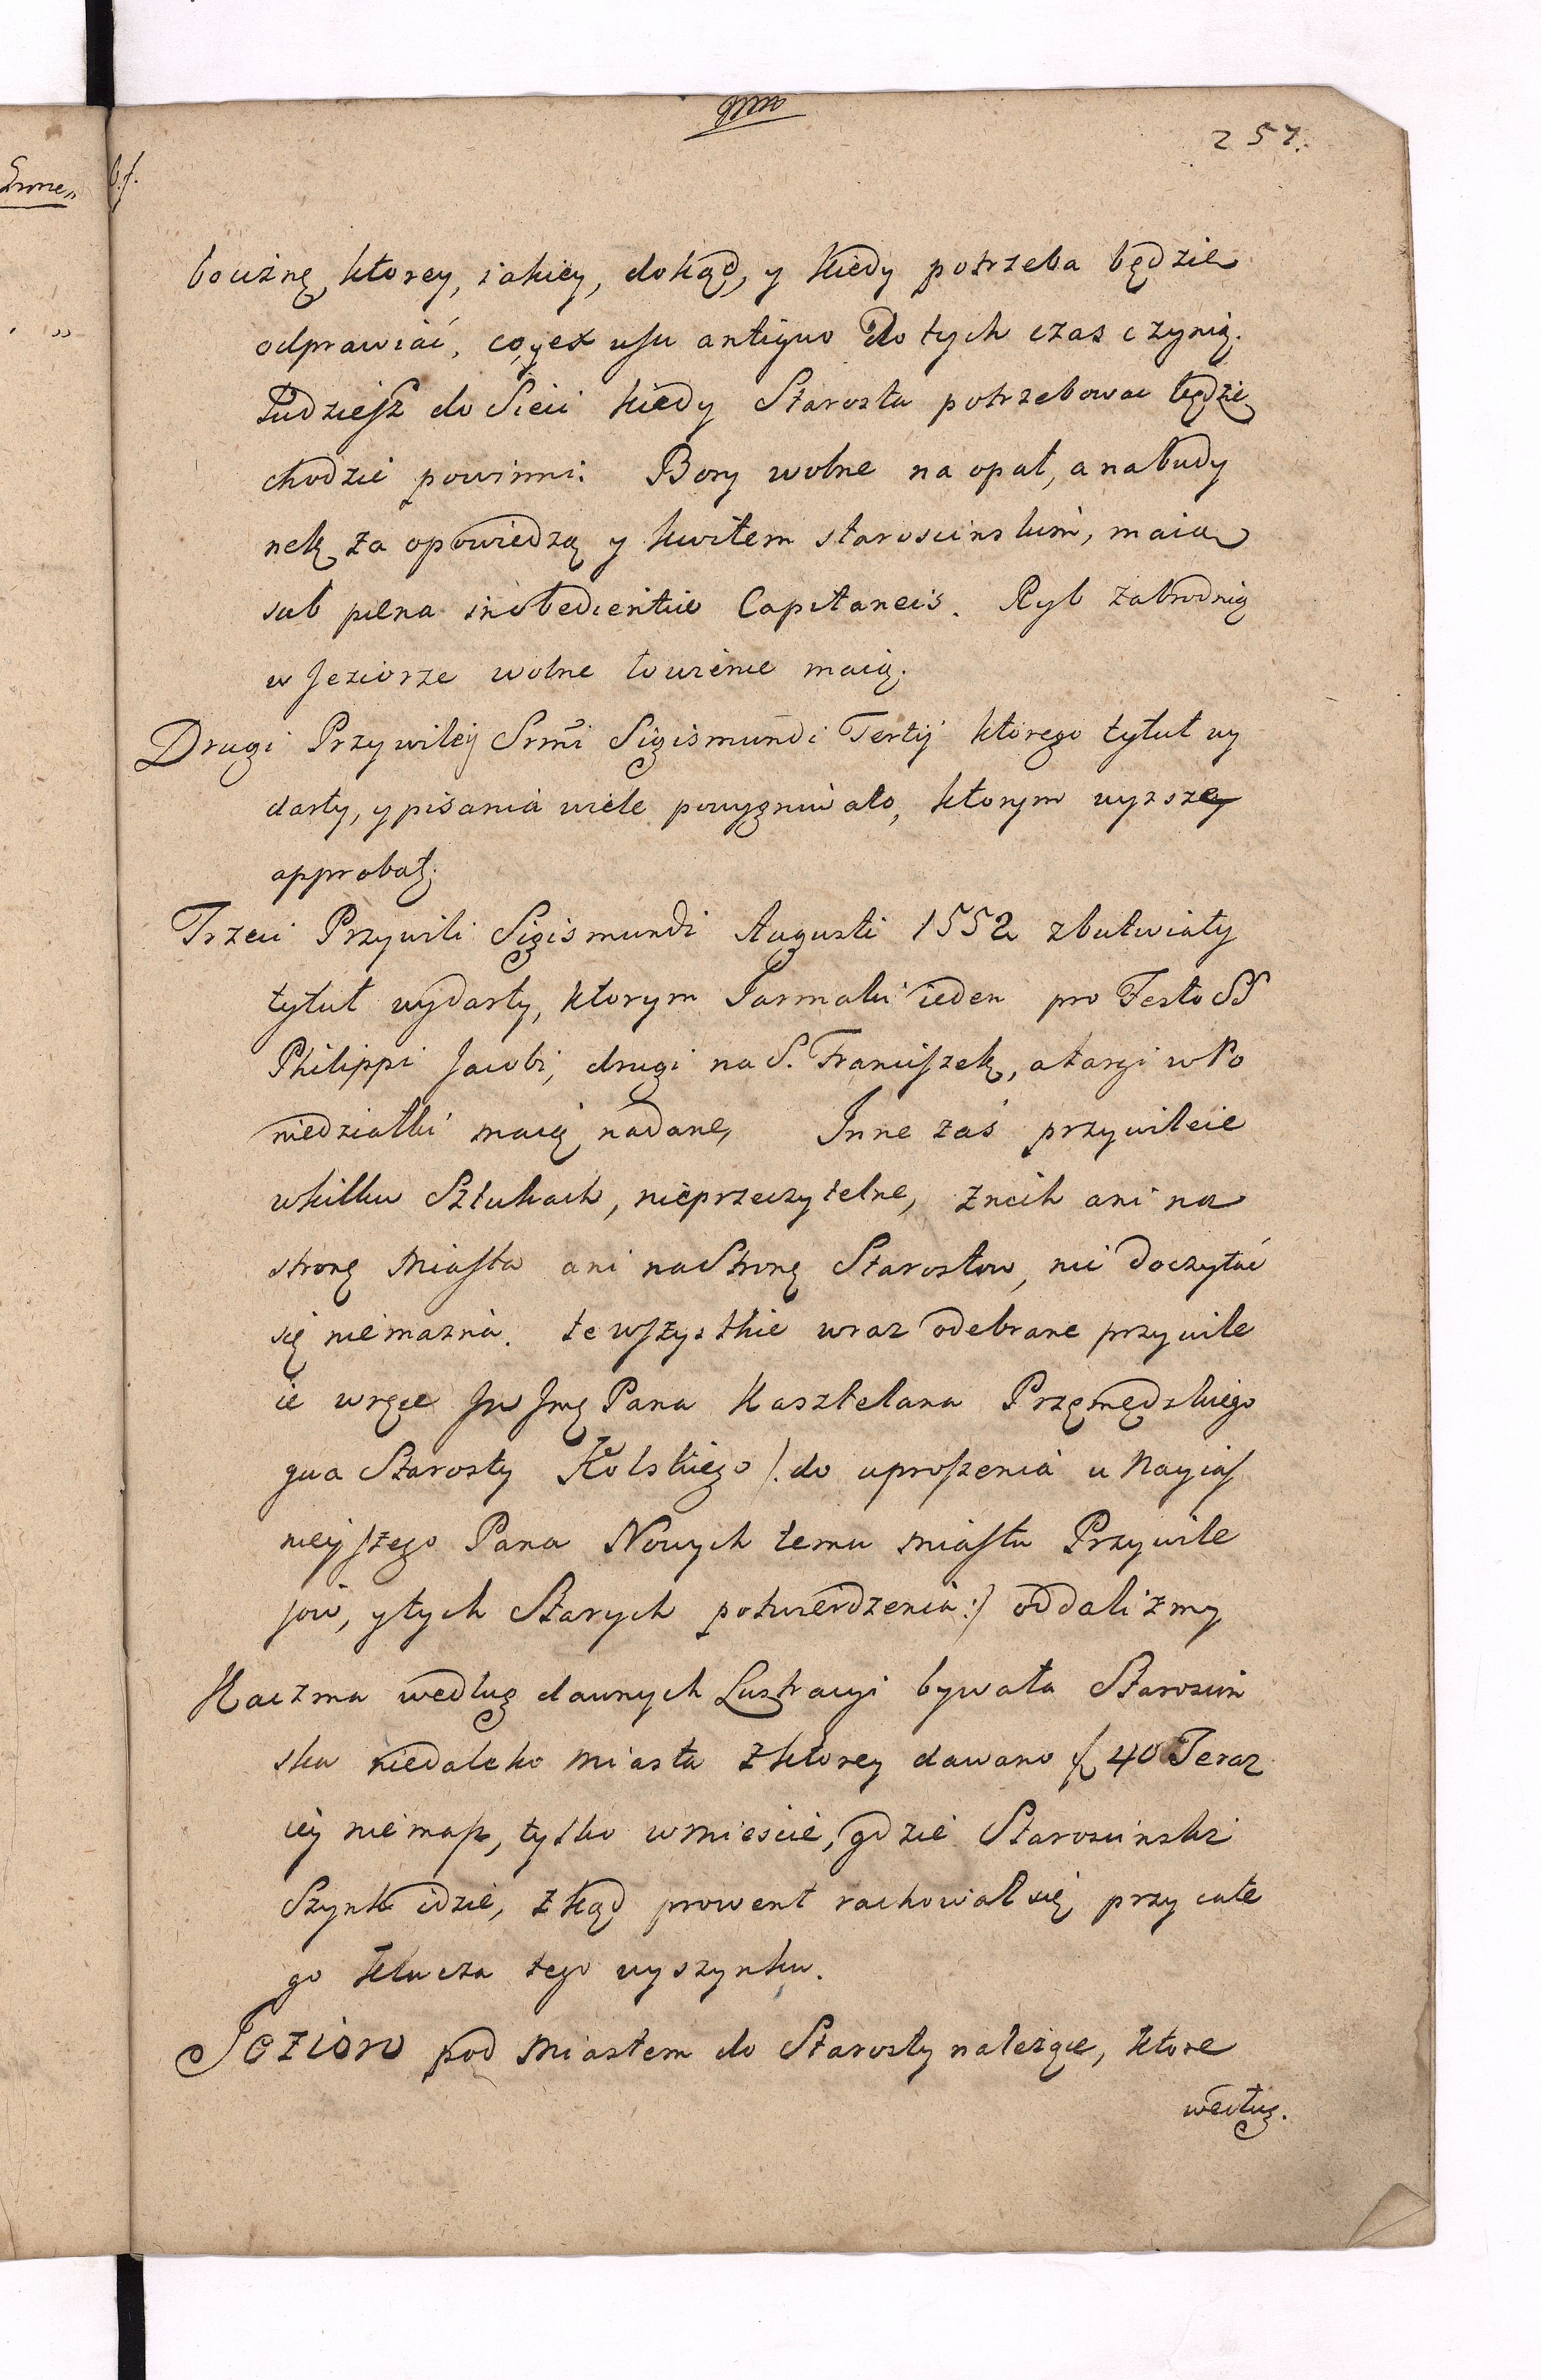 257.
bociznę, ktorey, iakiey, dokąd, y kiedy potrzeba będzie
odprawiać, co y ex usu antiquo do tych czas czynią.
Tudziesz do Sieci kiedy Starosta potrzebowac będzie
chodzić powinni. Bory wolne na opał, a na budy
nek za opowiedzą y kwitem staroscinskim, maią
sub pena inobedientie Capitaneis. Ryb zabrodnią
w Jeziorze wolne łowienie maią.
Drugi Przywiley Srmi Sigismundi Tertij ktorego tytuł wy
darty, y pisania wiele powygniwało, ktorym wyższey
approbat:
Trzeci Przywili Sigismundi Augusti 1552 zbutwiały
tytuł wydarty, ktorym Jarmaki ieden pro Festo SS
Philippi Jacobi, drugi na S. Franciszek, a targi w Po
niedziałki maią nadane, Inne zaś przywileie
w kilku Sztukach, nieprzeczytelne, z nich ani na
stronę Miasta ani na Stronę Starostow, nic doczytać
się niemozna. te wszystkie wraz odebrane przywile
ie w ręce Jw Jmę Pana Kasztelana Przemędzkiego
qua Starosty Kolskiego /: do uproszenia u Nayias
nieyszego Pana Nowych temu miastu Przywile
jow, y tych Starych potwierdzenia :/ oddalizmy
Karzma według dawnych Lustracyi bywała Staroscin
ska niedaleko Miasta z ktorey dawano f 40 Teraz
iey niemasz, tylko w Miescie, gdzie Staroscinski
Szynk idzie, z kąd prowent rachował się przy całe
go klucza tego wyszynku.
Jezioro pod Miastem do Starosty należące, ktore
według.